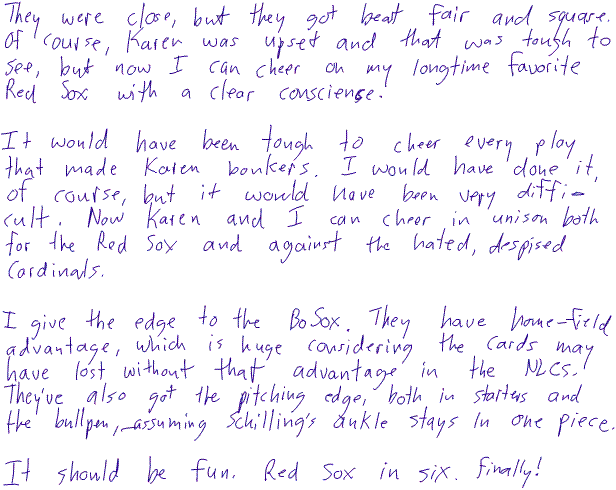 They were close, but they got beat fair and square.
Of course, Karen was upset and that was tough to
see, but now I can cheer on my longtime favorite
Red Sox with a clear conscience.
It would have been tough to cheer every play
that made Karen bonkers. I would have done it,
of course, but it would have been very diffi-
cult. Now Karen and I can cheer in unison both
for the Red Sox and against the hated, despised
Cardinals.
I give the edge to the BoSox. They have home-field
advantage, which is huge considering the Cards may
have lost without that advantage in the NLCS.
They've also got the pitching edge, both in starters and
the bullpen, assuming Schilling's ankle stays in one piece.
It should be fun. Red Sox in six. Finally!